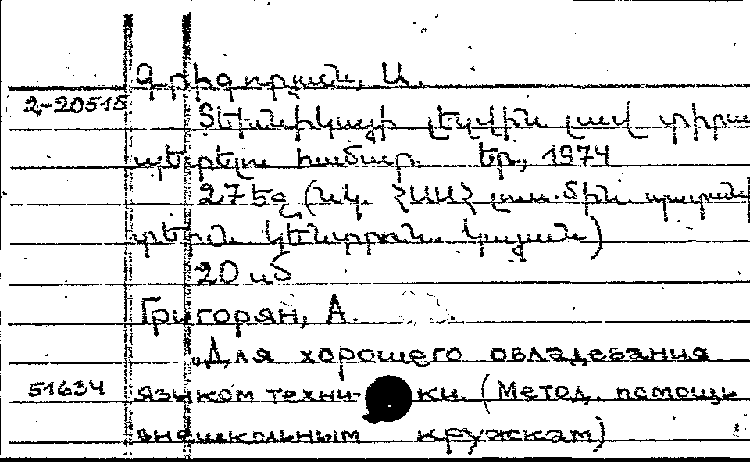 Գրիգորյան, Ա.
2-20515
Տեխնիկայի լեզվին լավ տիրա
պետելու համար. Եր., 1974
27 եզ (նկ. ՀՍՍՀ լուս. մին. պատան
տեխն. կենտրոն. կայան)
20 սմ
Григорян, А.
"Для хорошего овладевания
51634 языком техни- ки. (Метод. помощь
внешкольным кружкам)